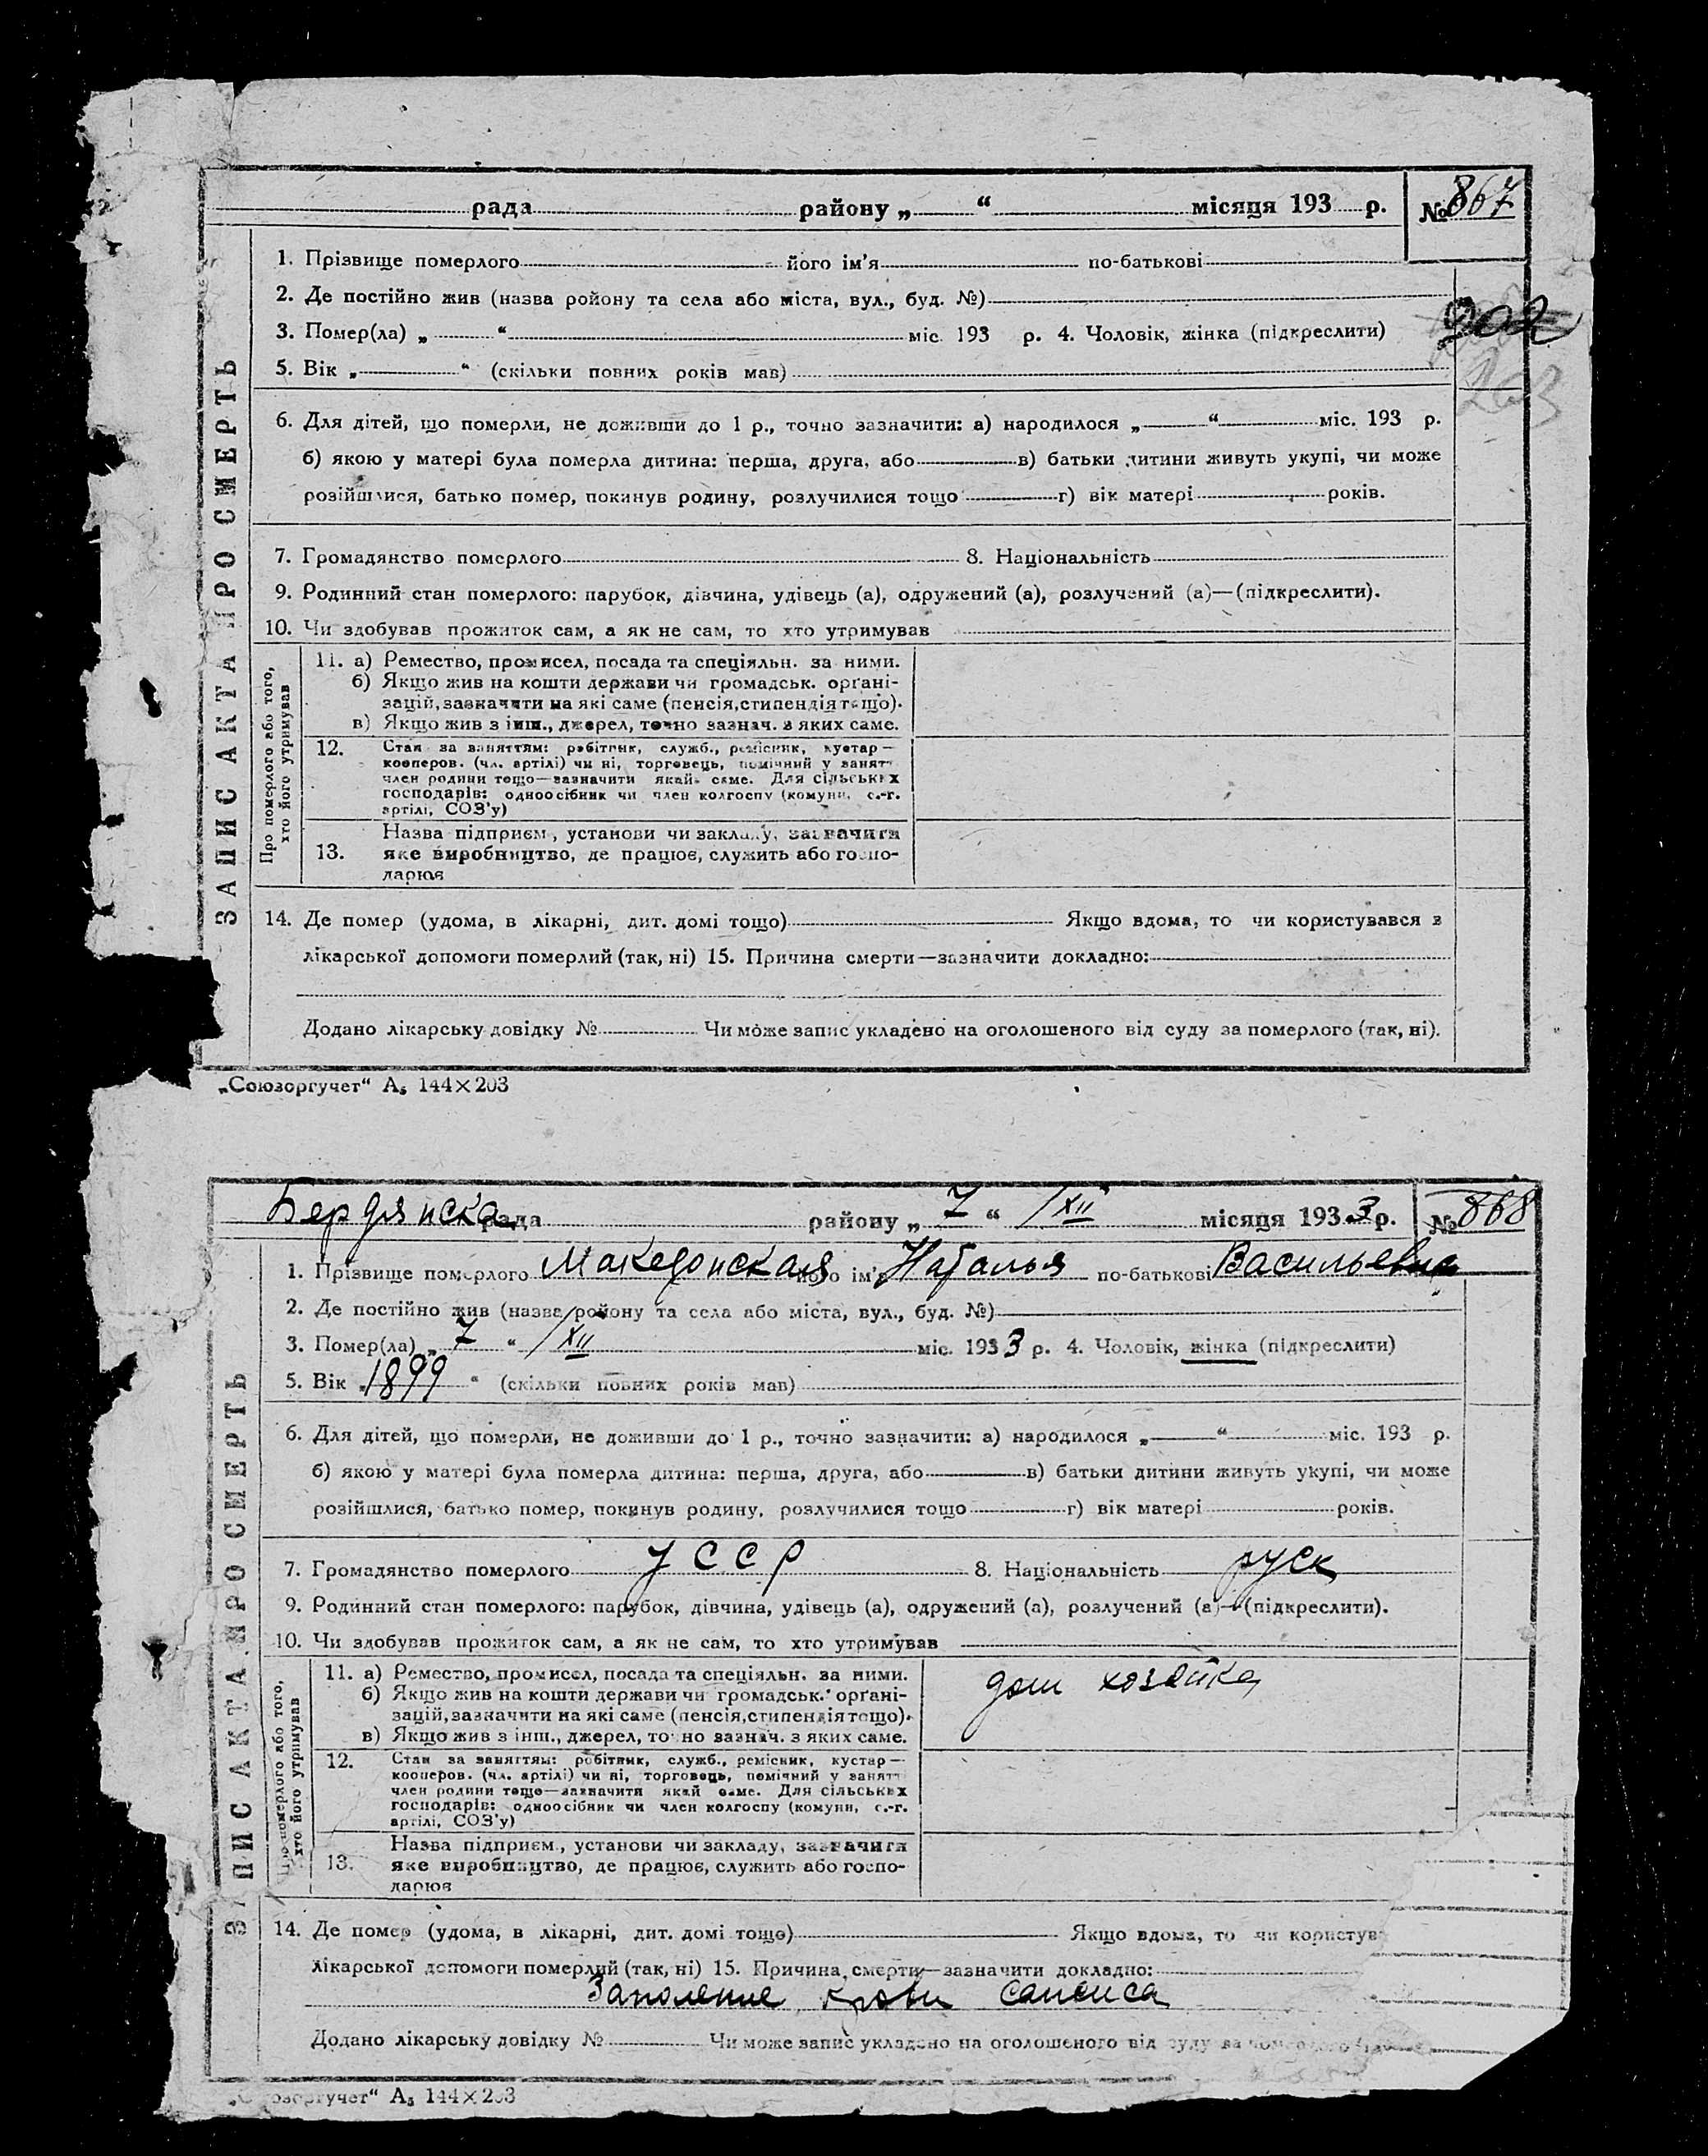 рада району „ “ місяця 193 р. № 867
1. Прізвище померлого його ім'я по-батькові
2. Де постійно жив (назва ройону та села або міста, вул., буд. №)
202
3. Помер(ла) „ “ міс. 193 р. 4. Чоловік, жінка (підкреслити)
5. Вік „ “ (скільки повних років мав)
203
6. Для дітей, що померли, не доживши до 1 р., точно зазначити: а) народилося „ “ міс. 193 р.
б) якою у матері була померла дитина: перша, друга, або в) батьки дитини живуть укупі, чи може
розійшлися, батько помер, покинув родину, розлучилися тощо г) вік матері років.
7. Громадянство померлого 8. Національність
9. Родинний стан померлого: парубок, дівчина, удівець (а), одружений (а), розлучений (а)—(підкреслити).
10. Чи здобував прожиток сам, а як не сам, то хто утримував
ЗАПИС АКТА ПРО СМЕРТЬ
Про померлого або того,
хто його утримував
11. а) Ремество, промисел, посада та спеціяльн. за ними.
б) Якщо жив на кошти держави чи громадськ. орґані-
зацій, зазначити на які саме (пенсія, стипендія тощо).
в) Якщо жив з інш., джерел, точно зазнач. з яких саме.
12. Стан за заняттям: робітник, служб., ремісник, кустар—
кооперов. (чл. артілі) чи ні, торговець, помічний у занятт
член родини тощо—зазначити який саме. Для сільських
господарів: одноосібник чи член колгоспу (комуни, с.-г.
артілі, СОЗ'у)
13. Назва підприєм., установи чи закладу, зазначити
яке виробництво, де працює, служить або госпо-
дарює
14. Де помер (удома, в лікарні, дит. домі тощо) Якщо вдома, то чи користувався з
лікарської допомоги померлий (так, ні) 15. Причина смерти—зазначити докладно:
Додано лікарську довідку № Чи може запис укладено на оголошеного від суду за померлого (так, ні).
„Союзоргучет“ А₅ 144×203
Бердянска рада району „ 7 “ /XII місяця 193 3 р. № 868
1. Прізвище померлого Македонская його ім'я Наталья по-батькові Васильевна
2. Де постійно жив (назва ройону та села або міста, вул., буд. №)
3. Помер(ла) „ 7 “ /XII міс. 193 3 р. 4. Чоловік, жінка (підкреслити)
5. Вік „ 1899 “ (скільки повних років мав)
6. Для дітей, що померли, не доживши до 1 р., точно зазначити: а) народилося „ “ міс. 193 р.
б) якою у матері була померла дитина: перша, друга, або в) батьки дитини живуть укупі, чи може
розійшлися, батько помер, покинув родину, розлучилися тощо г) вік матері років.
7. Громадянство померлого УССР 8. Національність руск
9. Родинний стан померлого: парубок, дівчина, удівець (а), одружений (а), розлучений (а)—(підкреслити).
10. Чи здобував прожиток сам, а як не сам, то хто утримував
ЗАПИС АКТА ПРО СМЕРТЬ
Про померлого або того,
хто його утримував
11. а) Ремество, промисел, посада та спеціяльн. за ними.
дом хозяйка
б) Якщо жив на кошти держави чи громадськ. орґані-
зацій, зазначити на які саме (пенсія, стипендія тощо).
в) Якщо жив з інш., джерел, точно зазнач. з яких саме.
12. Стан за заняттям: робітник, служб., ремісник, кустар—
кооперов. (чл. артілі) чи ні, торговець, помічний у занятт
член родини тощо—зазначити який саме. Для сільських
господарів: одноосібник чи член колгоспу (комуни, с.-г.
артілі, СОЗ'у)
13. Назва підприєм., установи чи закладу, зазначити
яке виробництво, де працює, служить або госпо-
дарює
14. Де помер (удома, в лікарні, дит. домі тощо) Якщо вдома, то чи користув
лікарської допомоги померлий (так, ні) 15. Причина смерти—зазначити докладно:
крови
Додано лікарську довідку № Чи може запис укладено на оголошеного від суду за померлого
„Союзоргучет“ А₅ 144×203